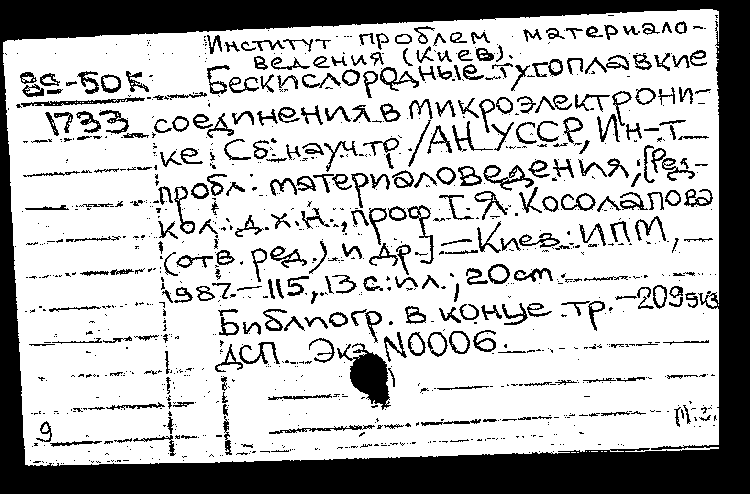 Институт проблем материало-
ведения (Киев).
89-БОК Бескислородные тугоплавкие
1733 соединения в микроэлектрони-
ке: Сб. науч. тр. / АН УССР, Ин-т
пробл. материаловедения; [Ред-
кол.: д.х.н., проф. Т.Я. Косолапова
(отв. ред.) и др.] — Киев: ИПМ,
1987. — 115, 13 с.: ил.; 20 cm.
Библиогр. в конце тр. — 209 экз.
ДСП. Экз. N0006.
9